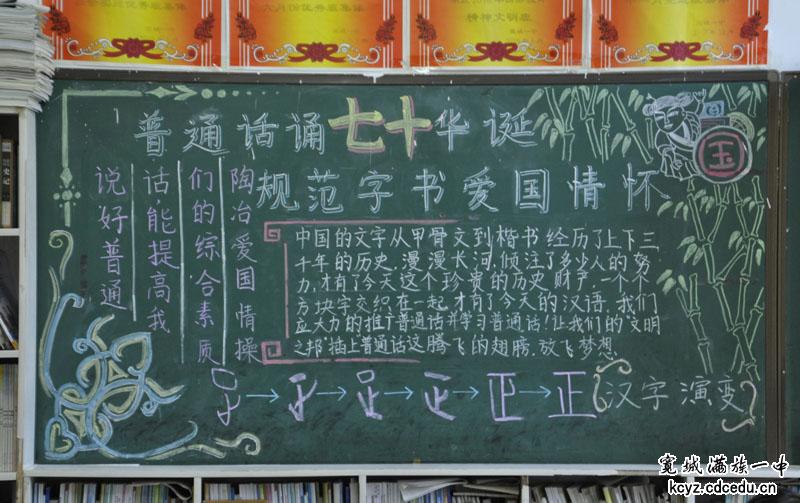 精神文明班
普通话诵七十华诞
规范字书爱国情怀
国
说好普通
话,能提高我
们的综合素质
陶冶爱国情操
中国的文字从甲骨文到楷书经历了上下三
千年的历史,漫漫长河,倾注了多少人的努
力,才有了今天这个珍贵的历史财产一个个
方块字交织在一起,才有了今天的汉语,我们
应大力的推广普通话并学习普通话!让我们的"文明
之邦"插上普通话这腾飞的翅膀,放飞梦想
正
汉字演变
宽城满族一中
kcyz.cdcedu.cn